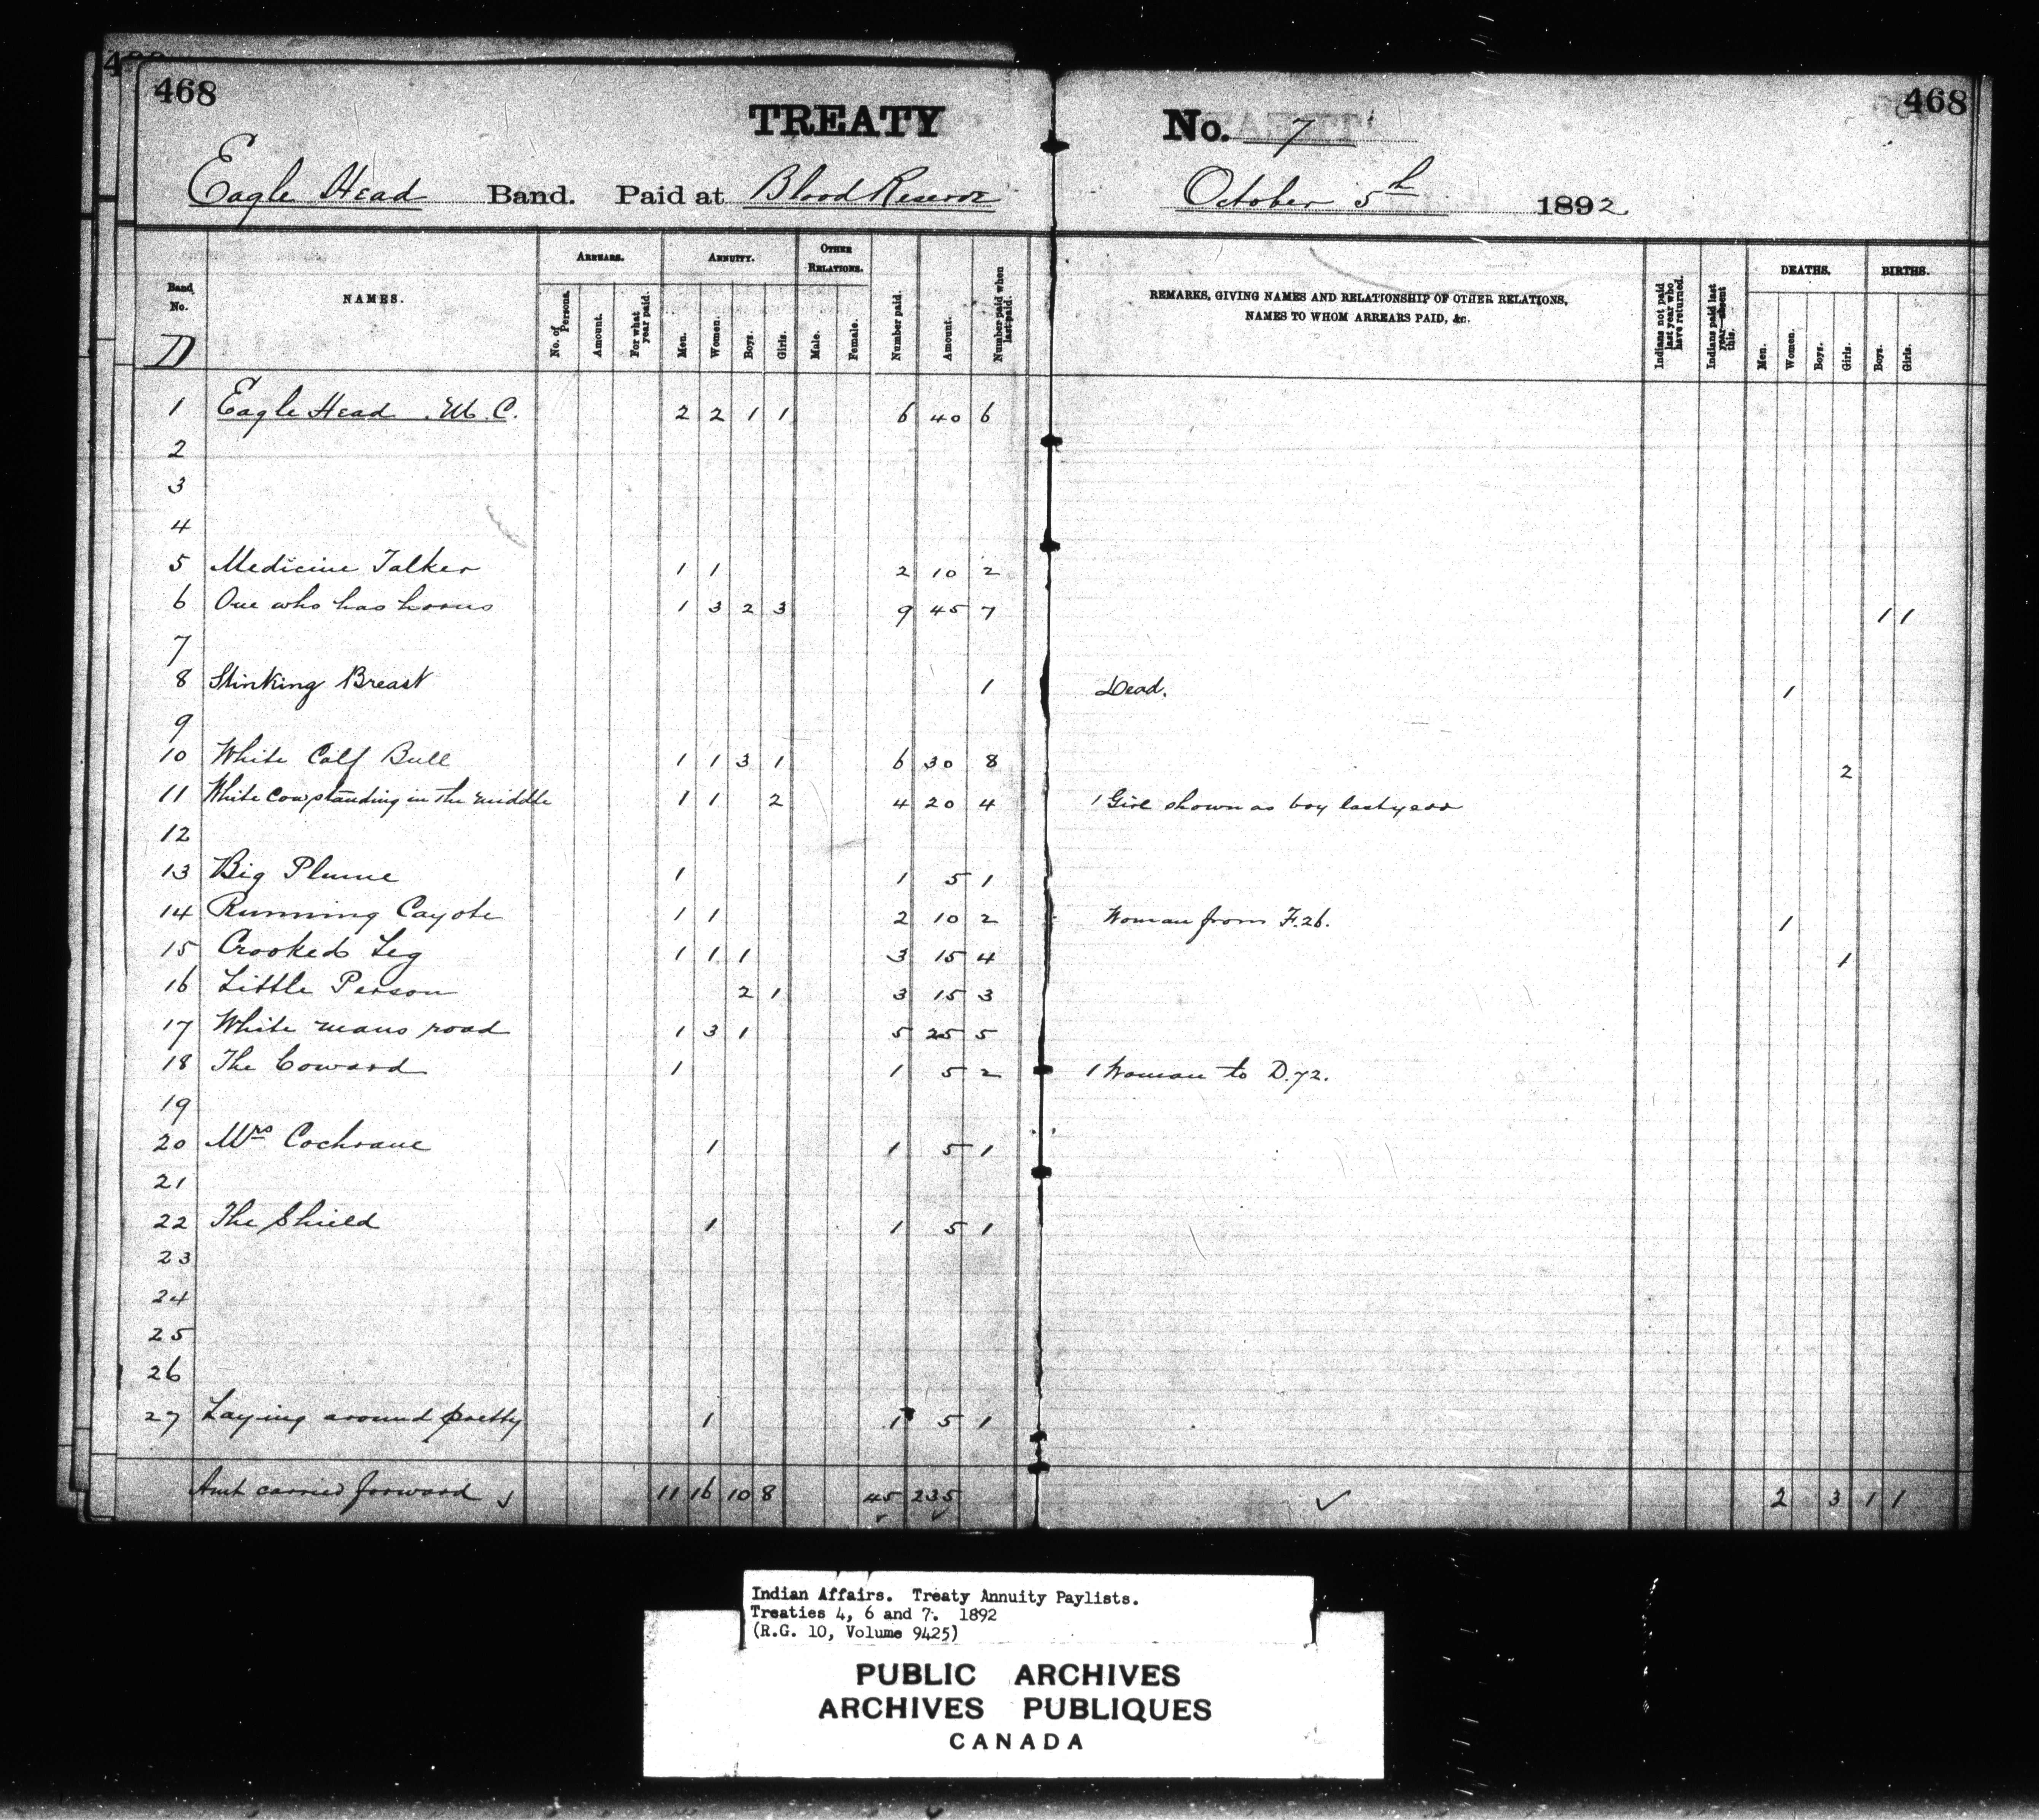 468
468
TREATY No. 7
Eagle Head Band. Paid at Blood Reserve October 5th 1892
Band No. NAMES. ARREARS. ANNUITY. OTHER RELATIONS. Number paid. Amount. Number paid when last paid. REMARKS, GIVING NAMES AND RELATIONSHIP OF OTHER RELATIONS, NAMES TO WHOM ARREARS PAID, &c. Indians not paid last year who have returned. Indians paid last year absent this. DEATHS. BIRTHS.
No. of Persons. Amount. For what year paid. Men. Women. Boys. Girls. Male. Female. Men. Women. Boys. Girls. Boys. Girls.
D
1 Eagle Head . M. C. 2 2 1 1 6 40 6
2
3
4
5 Medicine Talker 1 1 2 10 2
6 One who has horns 1 3 2 3 9 45 7 1 1
7
8 Stinking Breast 1 Dead. 1
9
10 White Calf Bull 1 1 3 1 6 30 8 2
11 White Cow standing in the middle 1 1 2 4 20 4 1 Girl shown as boy last year
12
13 Big Plume 1 1 5 1
14 Running Cayote 1 1 2 10 2 Woman from F.26. 1
15 Crooked Leg 1 1 1 3 15 4 1
16 Little Person 2 1 3 15 3
17 White mans road 1 3 1 5 25 5
18 The Coward 1 1 5 2 1 Woman to D.72.
19
20 Mrs Cochrane 1 1 5 1
21
22 The Shield 1 1 5 1
23
24
25
26
27 Laying around pretty 1 1 5 1
Amt carried forward 11 16 10 8 45 235 2 3 1 1
Indian Affairs. Treaty Annuity Paylists.
Treaties 4, 6 and 7. 1892
(R.G. 10, Volume 9425)
PUBLIC ARCHIVES
ARCHIVES PUBLIQUES
CANADA